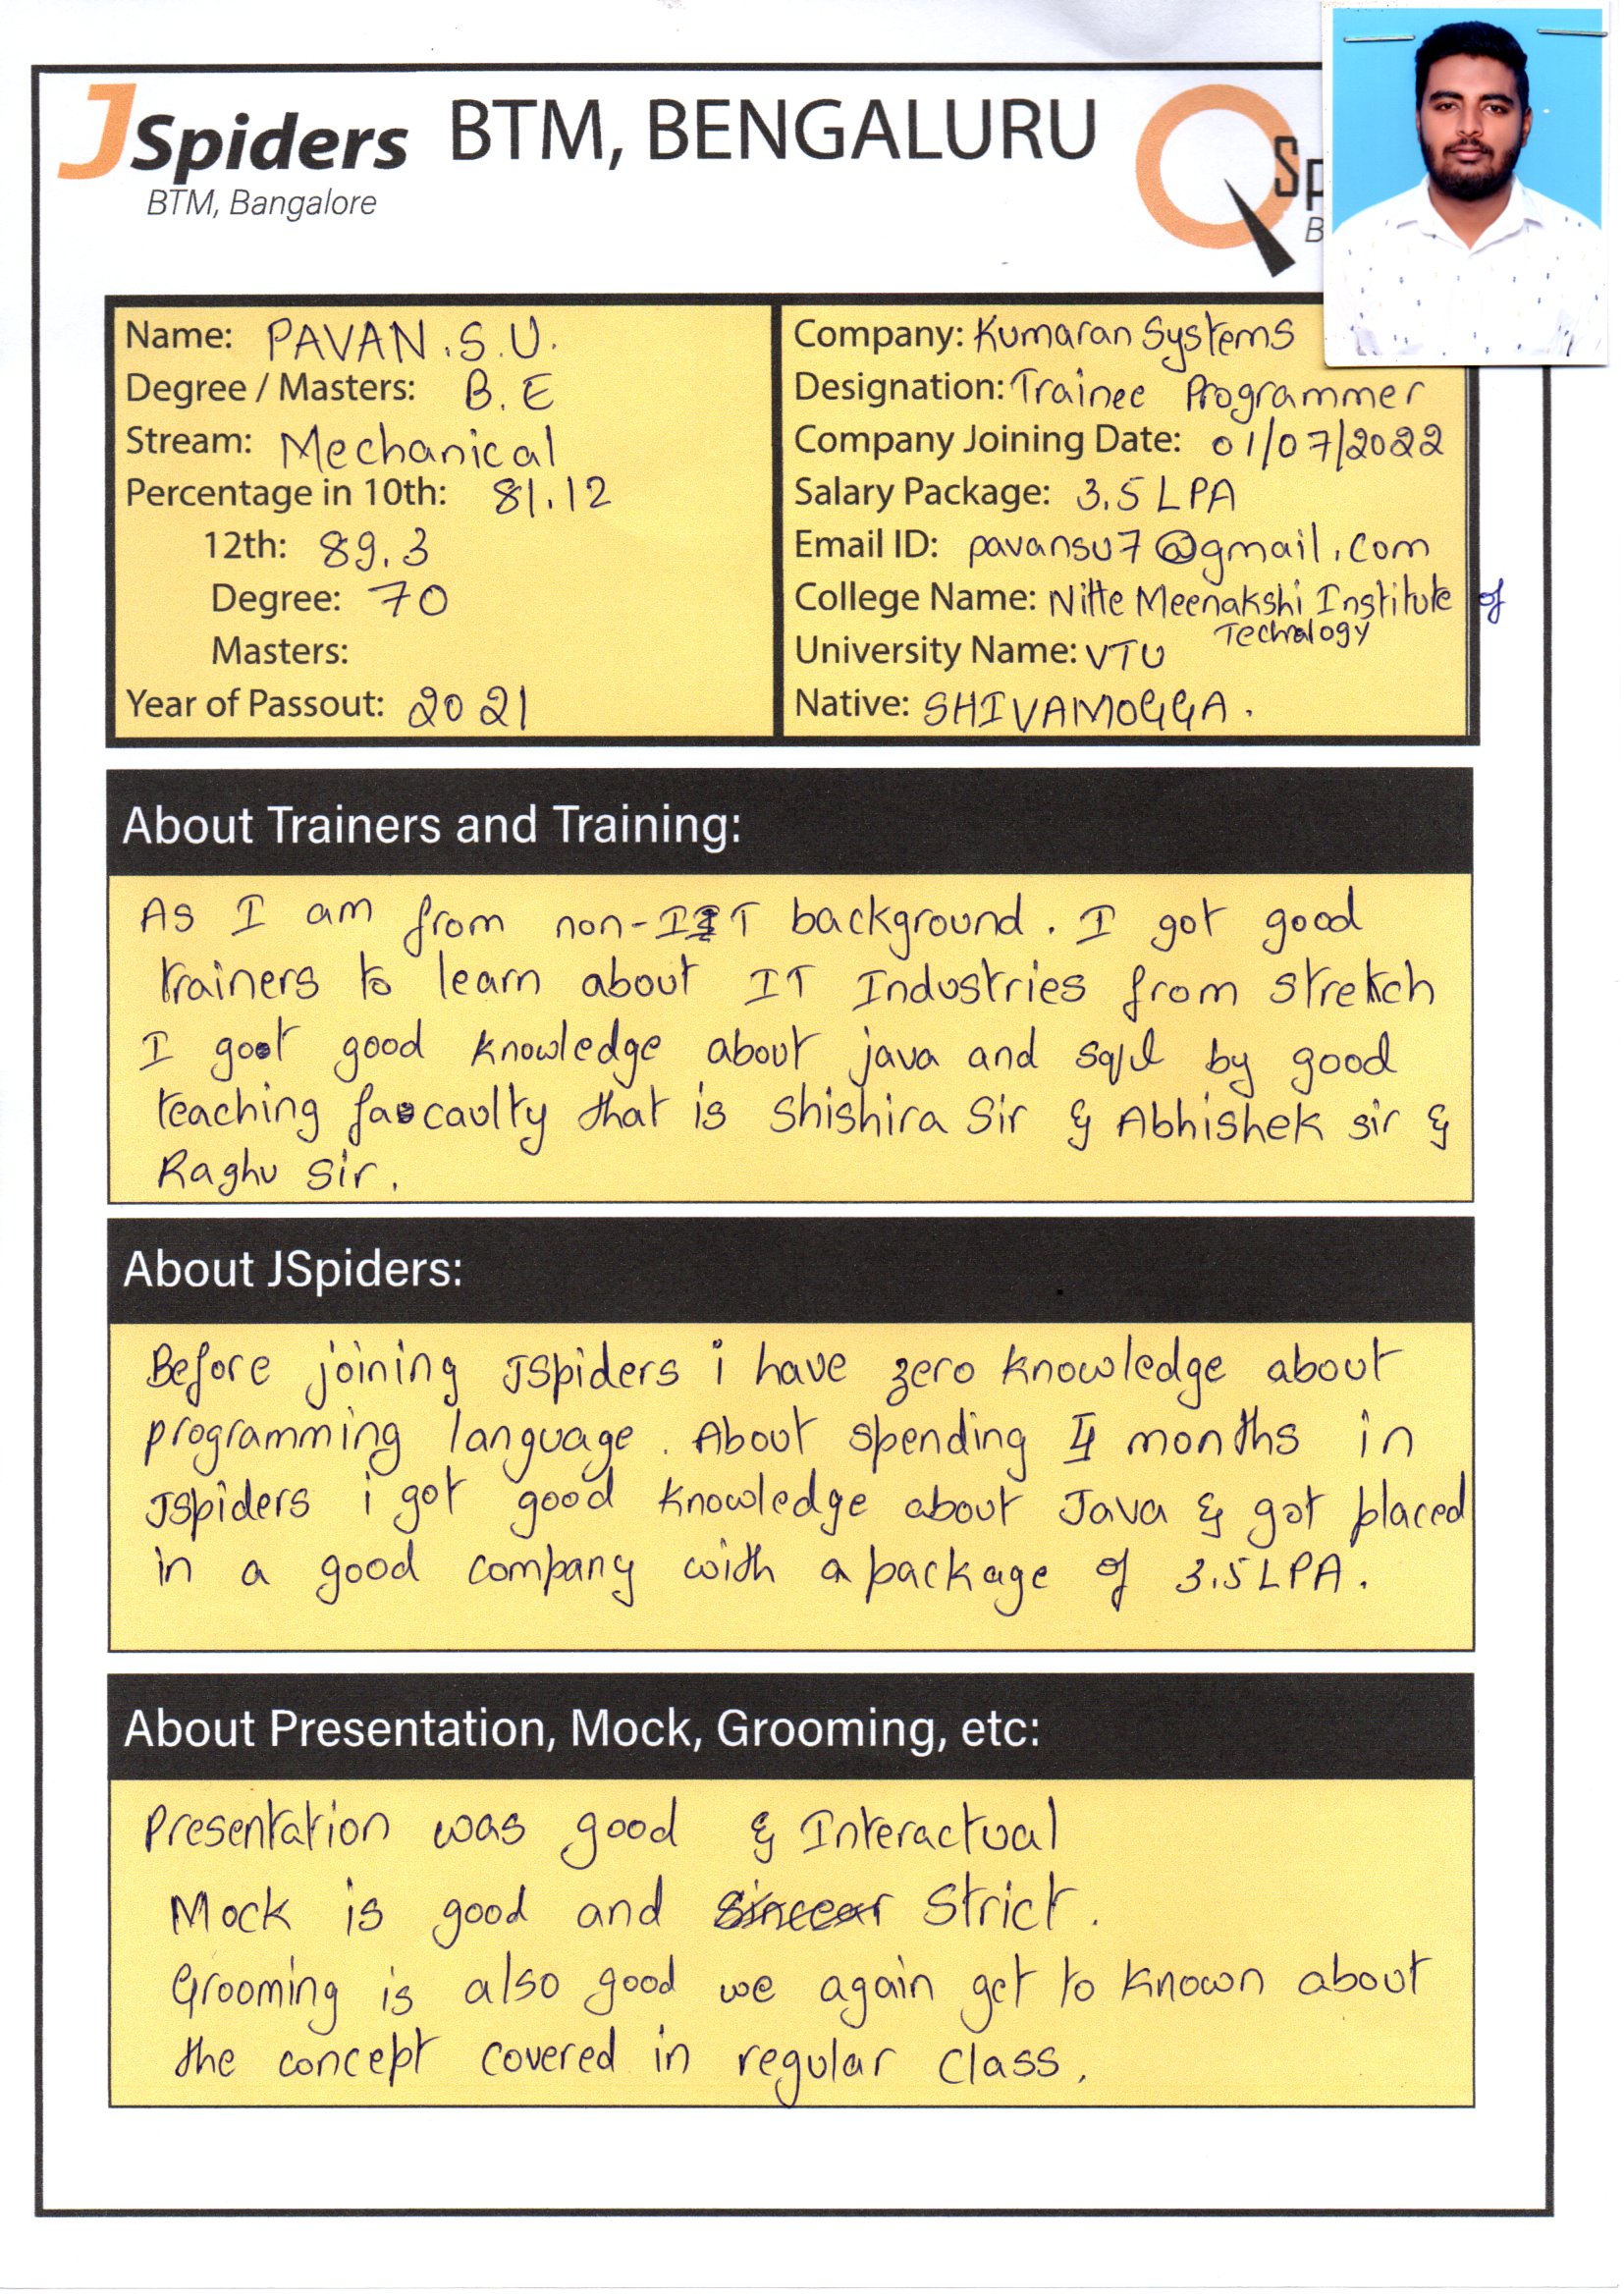 JSpiders BTM, BENGALURU
BTM, Bangalore
Name: PAVAN.S.U.
Degree / Masters: B.E
Stream: Mechanical
Percentage in 10th: 81.12
12th: 89.3
Degree: 70
Masters:
Year of Passout: 2021
Company: Kumaran Systems
Designation: Trainee Programmer
Company Joining Date: 01/07/2022
Salary Package: 3.5 LPA
Email ID: pavansu7@gmail.com
College Name: Nitte Meenakshi Institute of
Technology
University Name: VTU
Native: SHIVAMOGGA.
About Trainers and Training:
As I am from non-IT background. I got good
trainers to learn about IT Industries from stretch
I got good knowledge about java and sql by good
teaching facaulty that is Shishira Sir & Abhishek sir &
Raghu sir.
About JSpiders:
Before joining JSpiders i have zero knowledge about
programming language. About spending 4 months in
JSpiders i got good knowledge about Java & got placed
in a good company with a package of 3.5 LPA.
About Presentation, Mock, Grooming, etc:
Presentation was good & Interactual
Mock is good and Strict.
Grooming is also good we again get to known about
the concept covered in regular class.